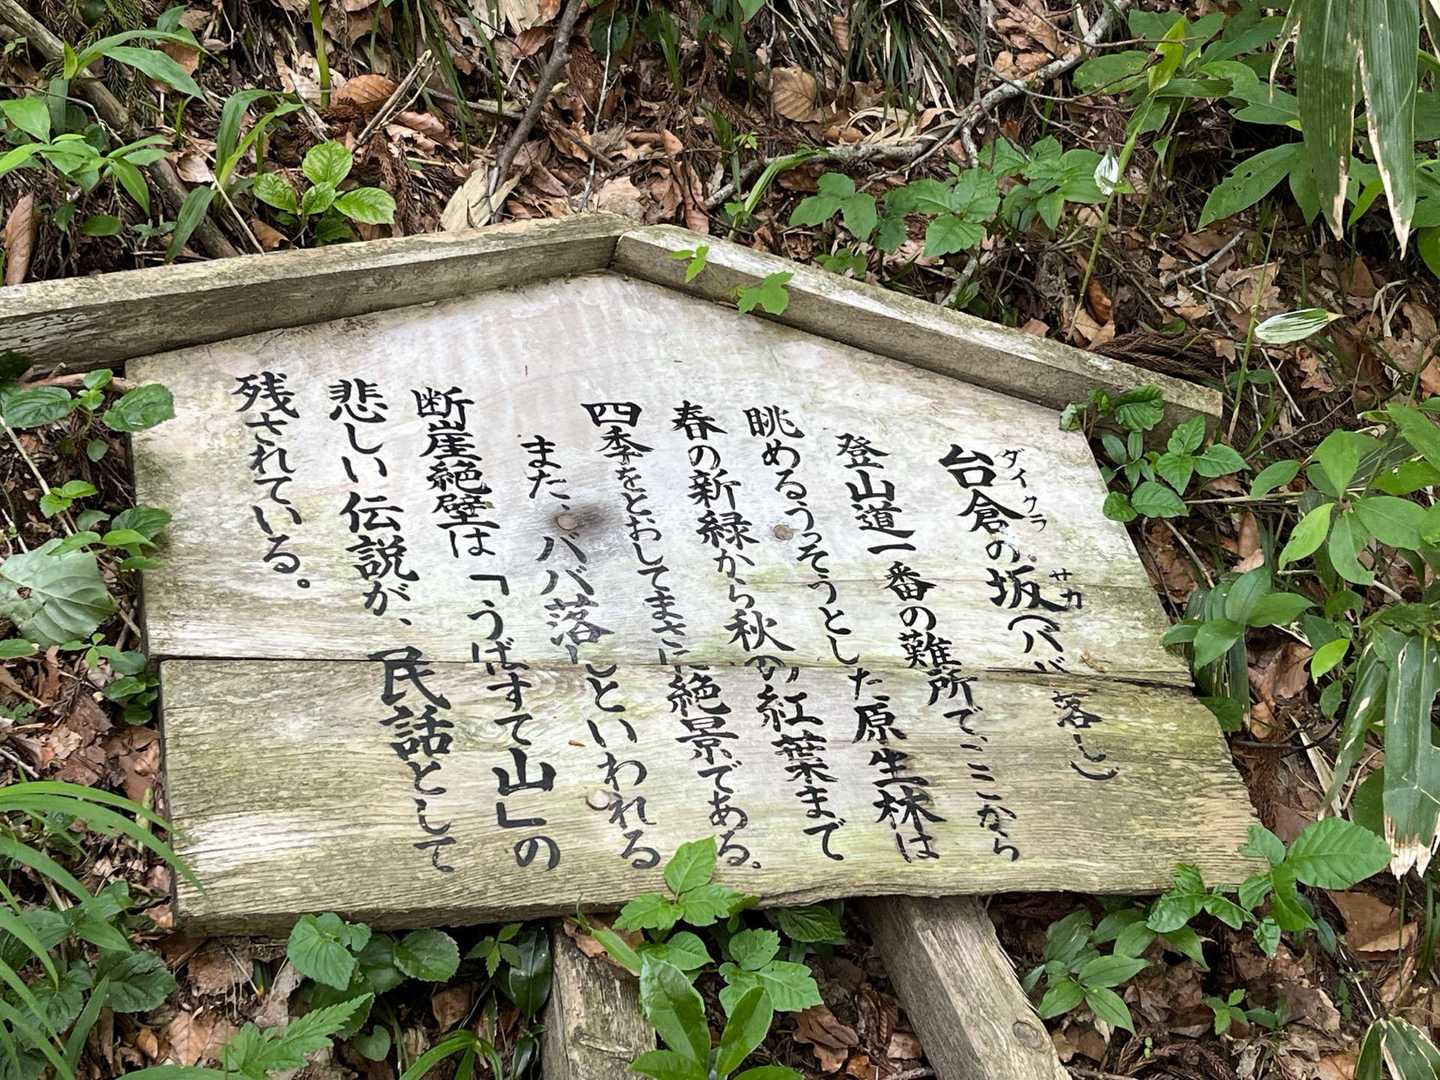 台倉の坂(ババ落し)
ダイクラ サカ
登山道一番の難所で、ここから
眺めるうっそうとした原生林は
春の新緑から秋の紅葉まで
四季をとおしてまさに絶景である。
また、ババ落しといわれる
断崖絶壁は「うばすて山」の
悲しい伝説が、民話として
残されている。